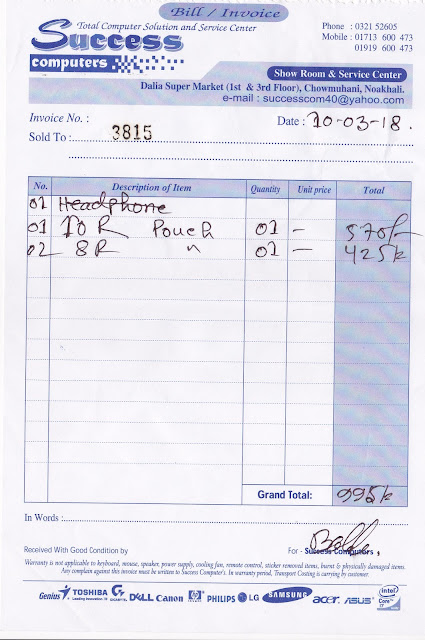 Bill / Invoice
Total Computer Solution and Service Center
Success
computers
Phone : 0321 52605
Mobile : 01713 600 473
01919 600 473
Show Room & Service Center
Dalia Super Market (1st & 3rd Floor), Chowmuhani, Noakhali.
e-mail : successcom40@yahoo.com
Invoice No. : 3815
Date : 10-03-18.
Sold To :
No. Description of Item Quantity Unit price Total
01 Headphone
01 10 R Pouch 01 - 570/-
02 8R " 01 - 425/-
Grand Total: 995/-
In Words :
Received With Good Condition by
For - Success Computers
Warranty is not applicable to keyboard, mouse, speaker, power supply, cooling fan, remote control, sticker removed items, burnt & physically damaged items.
Any complain against this invoice must be written to Success Computer's. In warranty period, Transport Costing is carrying by customer.
Genius TOSHIBA Leading Innovation GIGABYTE DELL Canon hp PHILIPS LG SAMSUNG acer ASUS intel Core i7